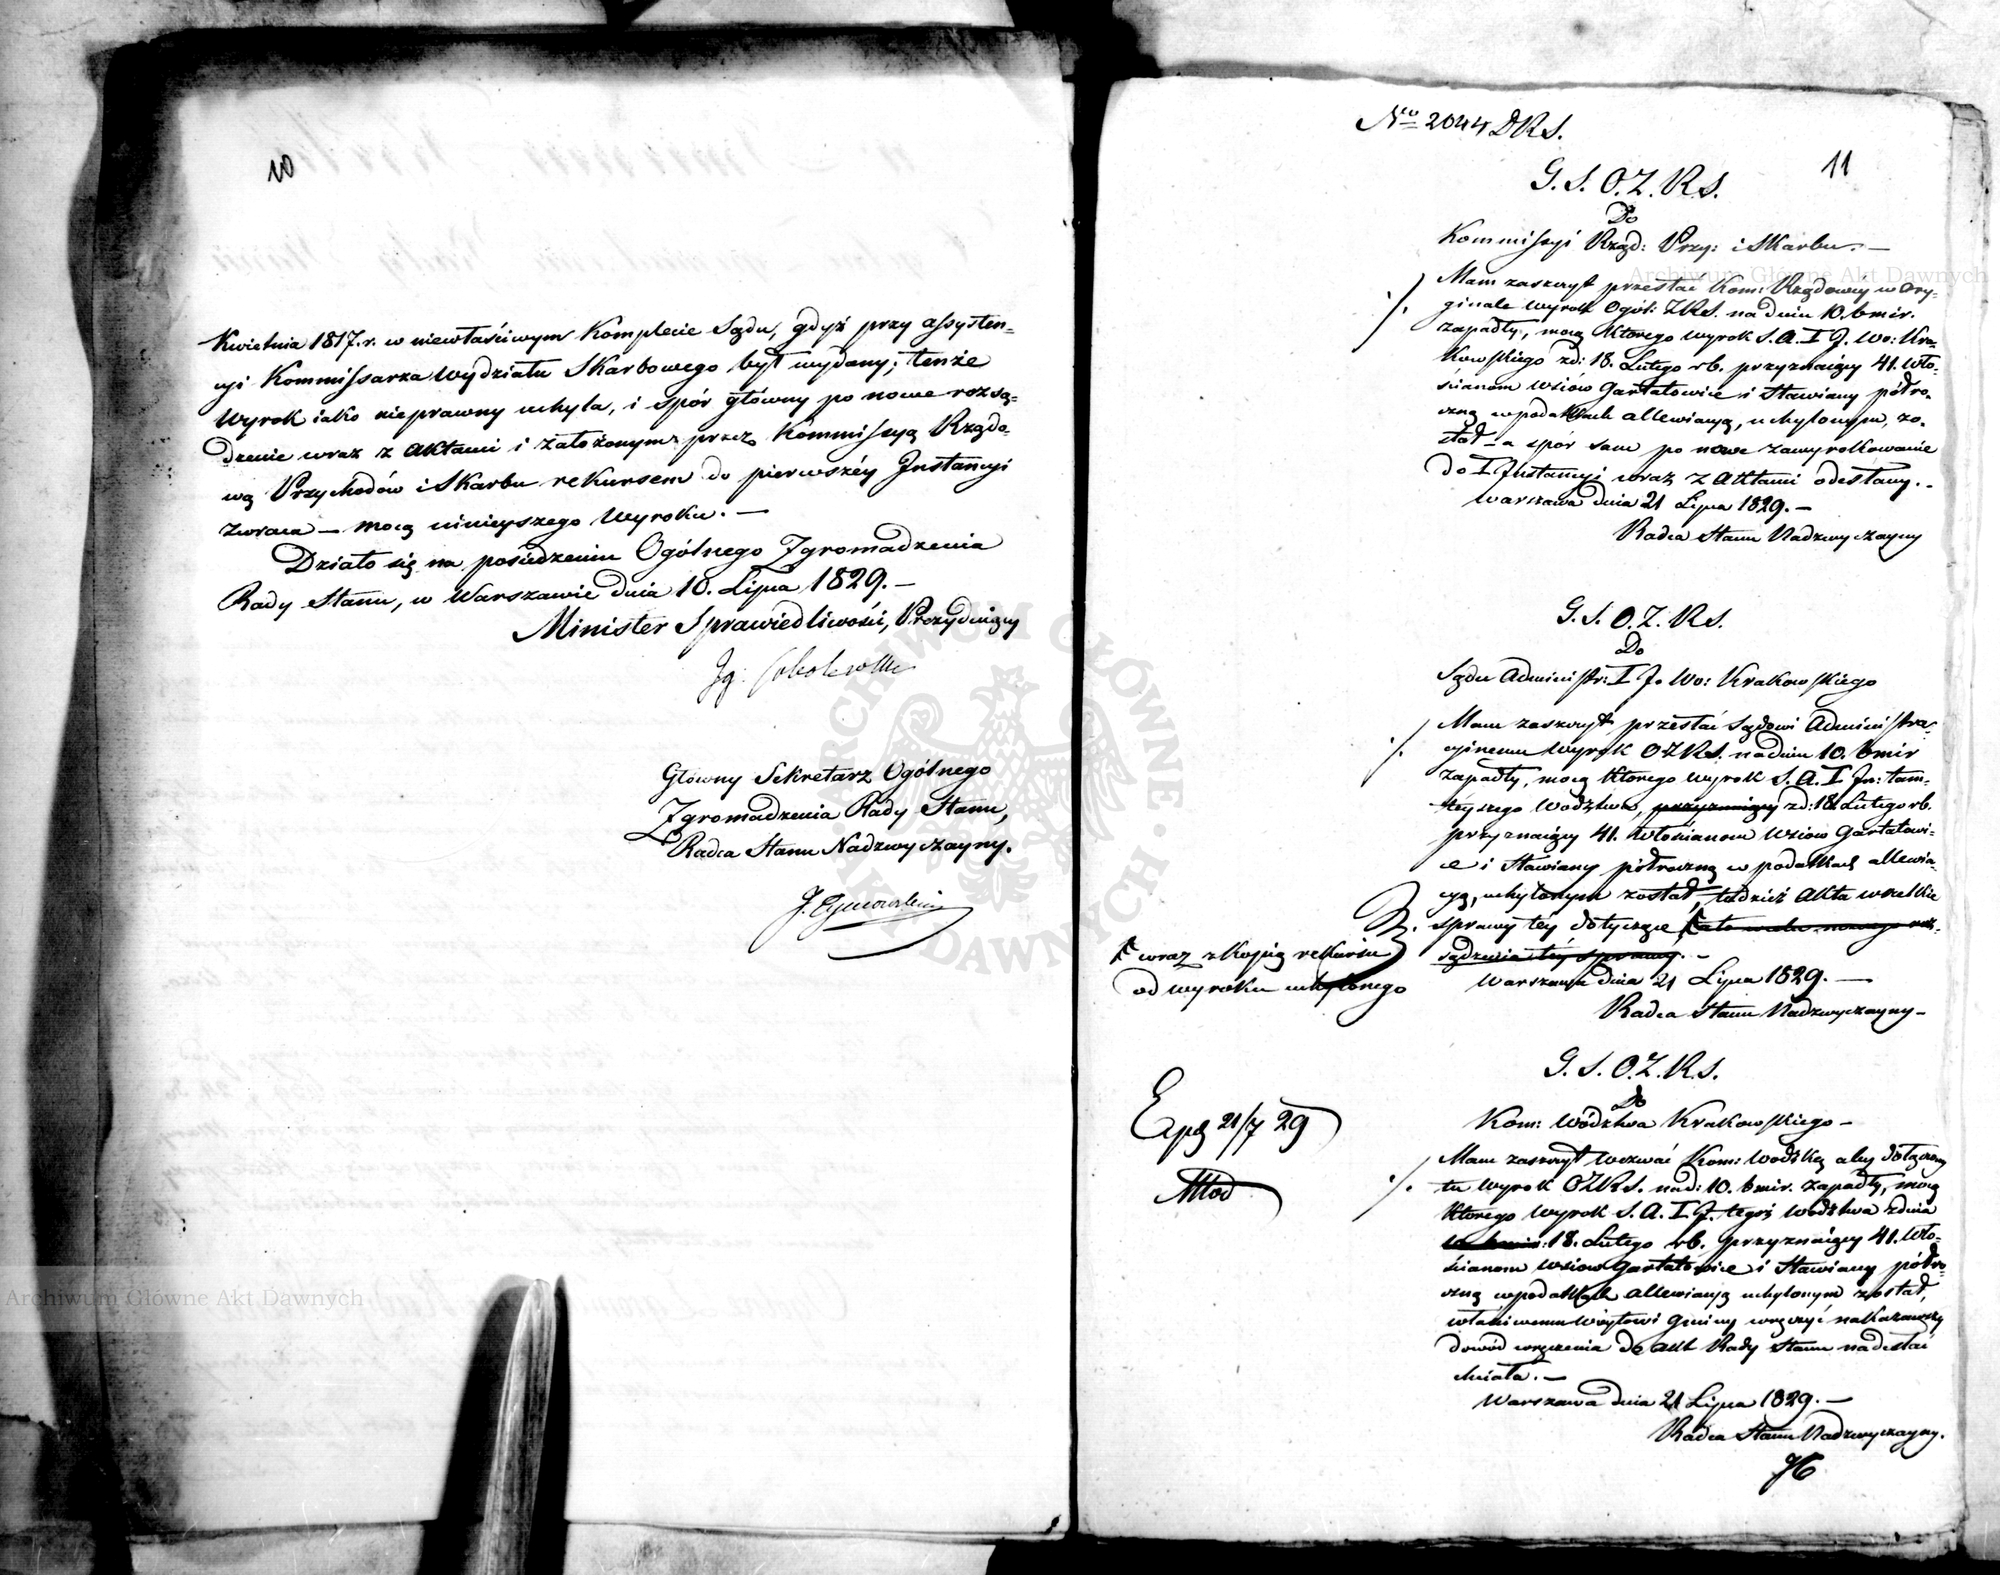 10
Kwietnia 1817. r. w niewłaściwym Komplecie Sądu, gdyż przy assysten-
cyi Kommissarza Wydziału Skarbowego był wydany; tenże
Wyrok iako nieprawny uchyla, i spór główny po nowe rozsą-
dzenie wraz z aktami i założonym przez Kommissyą Rządo-
wą Przychodów i Skarbu rekursem do pierwszéy Instancyi
zwraca — mocą ninieyszego Wyroku. —
Działo się na posiedzeniu Ogólnego Zgromadzenia
Rady Stanu, w Warszawie dnia 10. Lipca 1829. —
Minister Sprawiedliwości, Prezyduiący
Ig: Sobolewski
Główny Sekretarz Ogólnego
Zgromadzenia Rady Stanu,
Radca Stanu Nadzwyczayny.
Nro 2044 DRS.
11
G. S. O. Z. R. S.
Do
Kommissyi Rząd: Przy: i Skarbu. —
Mam zaszczyt przesłać Kom: Rządowéy w ory-
ginale wyrok Ogól: ZRS. na dniu 10. b mir.
zapadły, mocą którego wyrok S. A. I J. Wo: Kra-
kowskiego zd: 18. Lutego rb. przyznaiący 41. wło-
ścianom wsiow Gartatowice i Stawiany półro-
czną w podatkach allewiacyą, uchylonym, zo-
stał — a spór sam po nowe zawyrokowanie
do I Instancyi wraz z aktami odesłany. -
Warszawa dnia 21 Lipca 1829. —
Radca Stanu Nadzwyczayny
G. S. O. Z. R. S.
Do
Sądu Administr: I J. Wo: Krakowskiego
Mam zaszczyt przesłać Sądowi Administra-
cyinemu Wyrok OZRS. na dniu 10. b mir
zapadły, mocą którego wyrok S. A. I In: tam-
téyszego Wodztwa, przyznaiący zd: 18 Lutego rb.
przyznaiący 41. włościanom wsiow Gartatowi-
ce i Stawiany półroczną w podatkach allewia-
cyą, uchylonym został, tudzież akta wszelkie
sprawy téy dotyczące
sądzenia téy sprawy. -
wraz z kopią rekursu
od wyroku uchylonego
Warszawa dnia 21 Lipca 1829. —
Radca Stanu Nadzwyczayny —
G. S. O. Z. R. S.
Do
Kom: Wództwa Krakowskiego —
Exp 21/7 29
Mam zaszczyt wezwać Kom: Wodzką aby dołączony
tu wyrok OZRS. nad: 10. b mir. zapadły, mocą
którego wyrok S. A. I J. tegoż Wodztwa zdnia
18. Lutego rb. przyznaiący 41. wło-
ścianom wsiow Gartatowice i Stawiany półro-
czną w podatkach allewiacyą uchylonym został,
właściwemu Wóytowi Gminy wręczyć nakazawszy
dowód wręczenia do akt Rady Stanu nadesłać
chciała. —
Warszawa dnia 21 Lipca 1829. —
Radca Stanu Nadzwyczayny.
Archiwum Główne Akt Dawnych
Archiwum Główne Akt Dawnych
ARCHIWUM GŁÓWNE AKT DAWNYCH